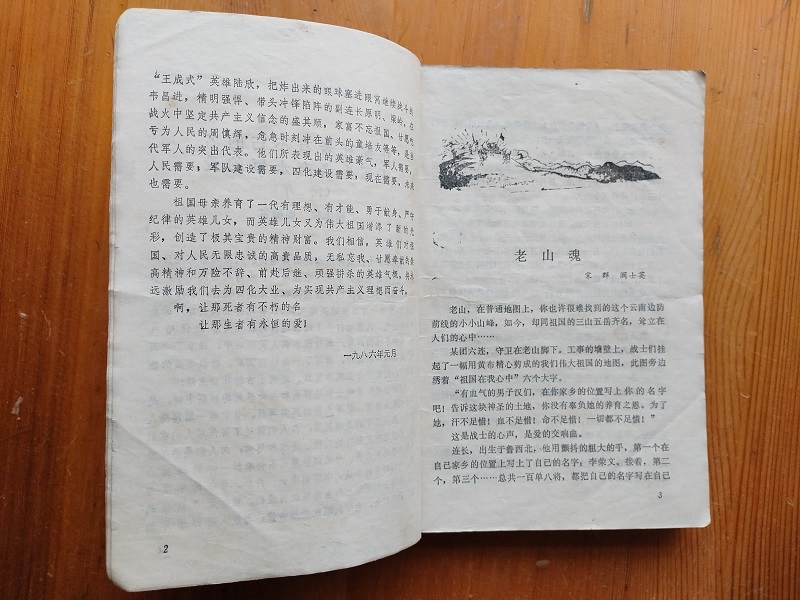 “王成式”英雄陆欣，把炸出来的眼球塞进眼窝继续战斗的
韦昌进，精明强悍、带头冲锋陷阵的副连长原明、梁岭，在
战火中坚定共产主义信念的盛其顺，家富不忘祖国、甘愿吃
亏为人民的周慎辉，危急时刻冲在前头的童培友等等，是当
代军人的突出代表。他们所表现出的英雄豪气，军人需要，
人民需要；军队建设需要，四化建设需要，现在需要，未来
也需要。
祖国母亲养育了一代有理想、有才能、勇于献身、严守
纪律的英雄儿女，而英雄儿女又为伟大祖国增添了新的光
彩，创造了极其宝贵的精神财富。我们相信，英雄们对祖
国、对人民无限忠诚的高贵品质，无私忘我、甘愿奉献的崇
高精神和万险不辞、前赴后继、顽强拼杀的英雄气概，将永
远激励我们去为四化大业、为实现共产主义理想而奋斗。
啊，让那死者有不朽的名
让那生者有永恒的爱！
一九八六年元月
2
老山魂
宋群 阎士英
老山，在普通地图上，你也许很难找到的这个云南边防
前线的小小山峰，如今，却同祖国的三山五岳齐名，耸立在
人们的心中……
某团六连，守卫在老山脚下。工事的墙壁上，战士们挂
起了一幅用黄布精心剪成的我们伟大祖国的地图，此图旁边
绣着“祖国在我心中”六个大字。
“有血气的男子汉们，在你家乡的位置写上你的名字
吧！告诉这块神圣的土地，你没有辜负她的养育之恩。为了
她，汗不足惜！血不足惜！命不足惜！一切都不足惜！”
这是战士的心声，是爱的交响曲。
连长，出生于鲁西北，他用颤抖的粗大的手，第一个在
自己家乡的位置上写上了自己的名字：李荣文。接着，第二
个，第三个……总共一百单八将，都把自己的名字写在自己
3